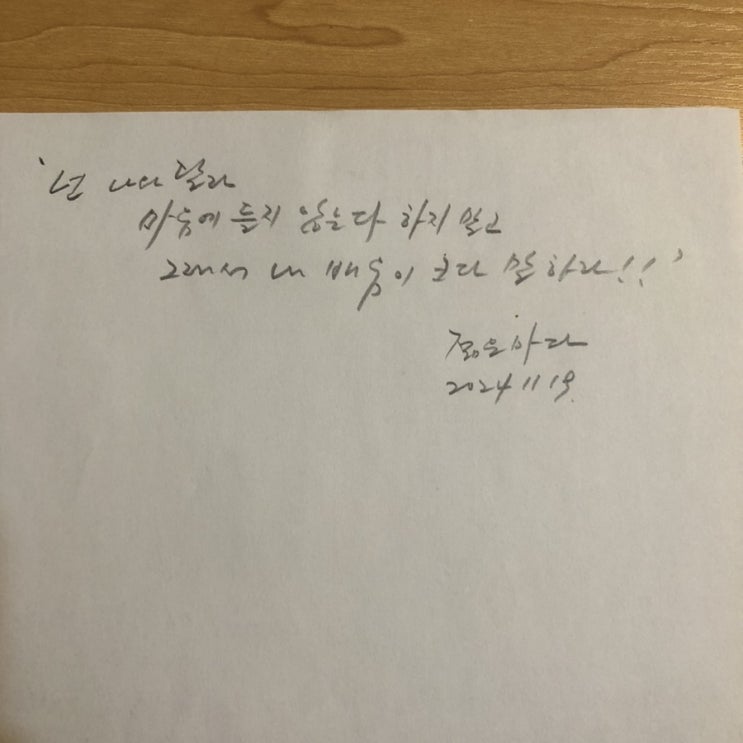 '넌 나와 달라
마음에 들지 않는다 하지 말고
그래서 내 배움이 크다 말하라!!'
2024 11 19.